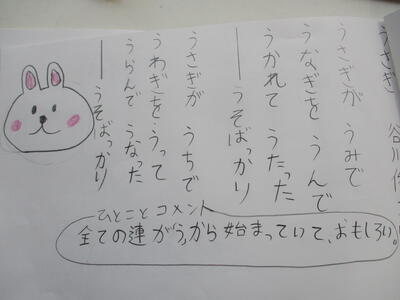 うさぎ
谷川
うさぎが うみで
うなぎを うんで
うかれて うたった
―うそばっかり
うさぎが うちで
うわぎを うって
うらんで うなった
―うそばっかり
ひとこと コメント
全ての連が「う」から始まっていて、おもしろい。